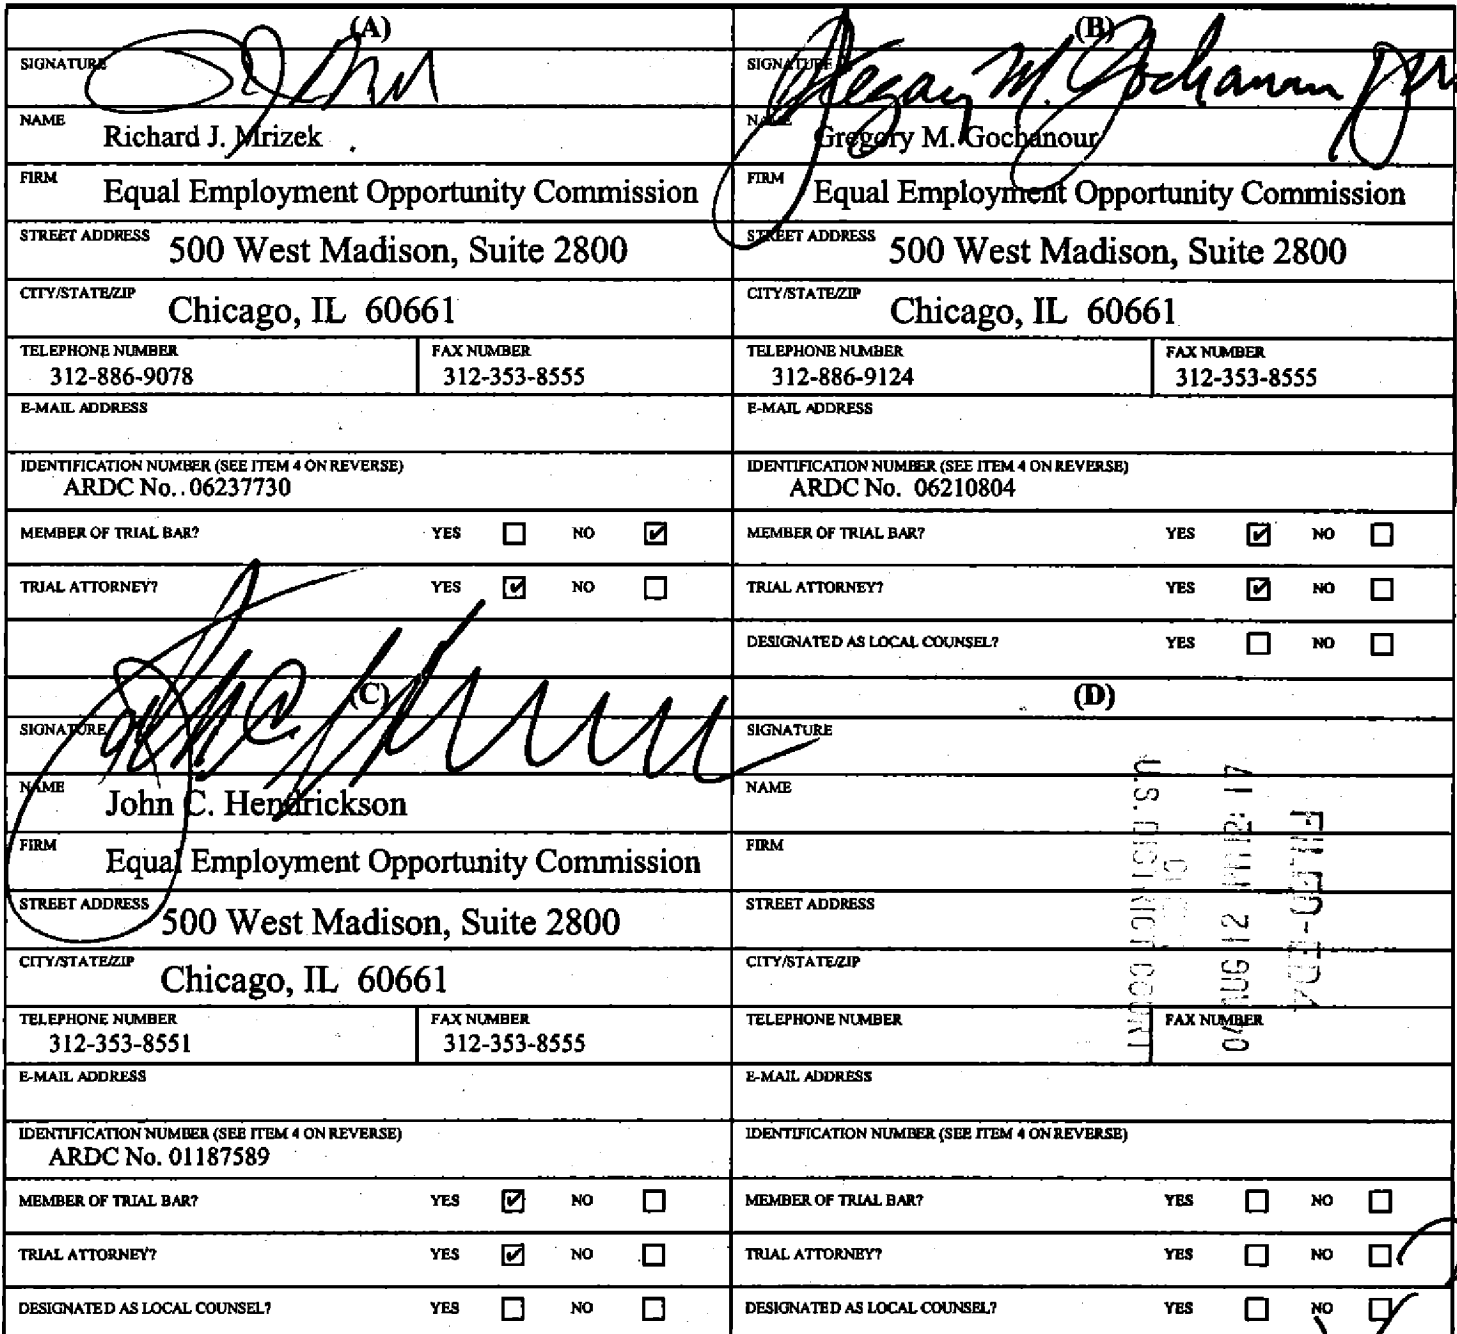 (A)
SIGNATURE
NAME
Richard J. Mrizek
FIRM
Equal Employment Opportunity Commission
STREET ADDRESS
500 West Madison, Suite 2800
CITY/STATE/ZIP
Chicago, IL 60661
TELEPHONE NUMBER
312-886-9078
FAX NUMBER
312-353-8555
E-MAIL ADDRESS
IDENTIFICATION NUMBER (SEE ITEM 4 ON REVERSE)
ARDC No. 06237730
MEMBER OF TRIAL BAR? YES ☐ NO ☑
TRIAL ATTORNEY? YES ☑ NO ☐
(B)
SIGNATURE
Gregory M. Gochanour
NAME
Gregory M. Gochanour
FIRM
Equal Employment Opportunity Commission
STREET ADDRESS
500 West Madison, Suite 2800
CITY/STATE/ZIP
Chicago, IL 60661
TELEPHONE NUMBER
312-886-9124
FAX NUMBER
312-353-8555
E-MAIL ADDRESS
IDENTIFICATION NUMBER (SEE ITEM 4 ON REVERSE)
ARDC No. 06210804
MEMBER OF TRIAL BAR? YES ☑ NO ☐
TRIAL ATTORNEY? YES ☑ NO ☐
DESIGNATED AS LOCAL COUNSEL? YES ☐ NO ☐
(C)
SIGNATURE
NAME
John C. Hendrickson
FIRM
Equal Employment Opportunity Commission
STREET ADDRESS
500 West Madison, Suite 2800
CITY/STATE/ZIP
Chicago, IL 60661
TELEPHONE NUMBER
312-353-8551
FAX NUMBER
312-353-8555
E-MAIL ADDRESS
IDENTIFICATION NUMBER (SEE ITEM 4 ON REVERSE)
ARDC No. 01187589
MEMBER OF TRIAL BAR? YES ☑ NO ☐
TRIAL ATTORNEY? YES ☑ NO ☐
DESIGNATED AS LOCAL COUNSEL? YES ☐ NO ☐
(D)
SIGNATURE
NAME
FIRM
STREET ADDRESS
CITY/STATE/ZIP
TELEPHONE NUMBER
FAX NUMBER
E-MAIL ADDRESS
IDENTIFICATION NUMBER (SEE ITEM 4 ON REVERSE)
MEMBER OF TRIAL BAR? YES ☐ NO ☐
TRIAL ATTORNEY? YES ☐ NO ☐
DESIGNATED AS LOCAL COUNSEL? YES ☐ NO ☐
04 AUG 12
U.S. DISTRICT COURT